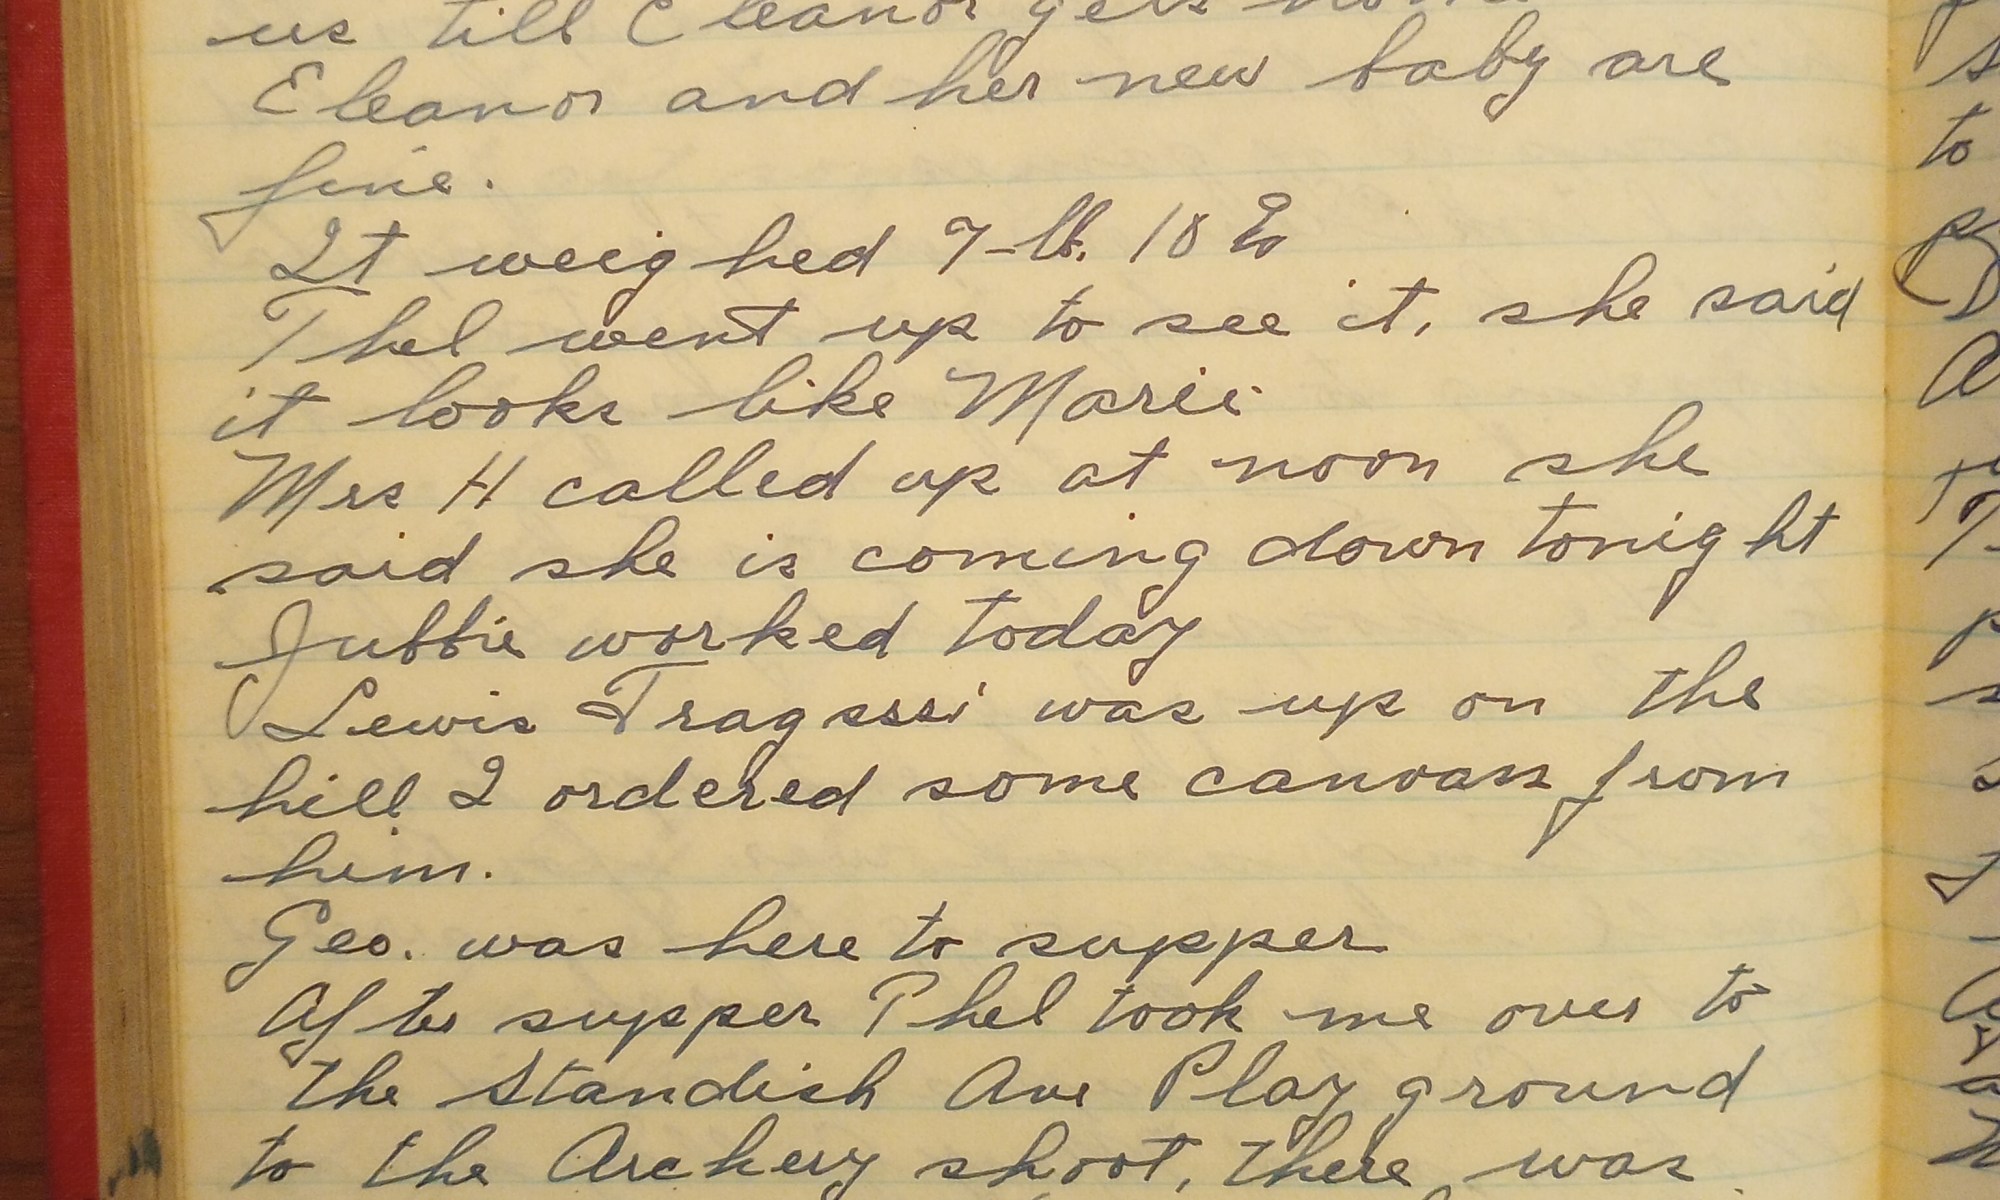 us till Eleanor gets home
Eleanor and her new baby are
fine.
It weighed 7-lb. 10
Thel went up to see it, she said
it looks like Marie
Mrs H called up at noon she
said she is coming down tonight
Jubbie worked today
Lewis was up on the
hill I ordered some canvass from
him.
Geo. was here to supper
After supper Phel took me over to
the Standish Ave Play ground
to the Archery shoot, there was